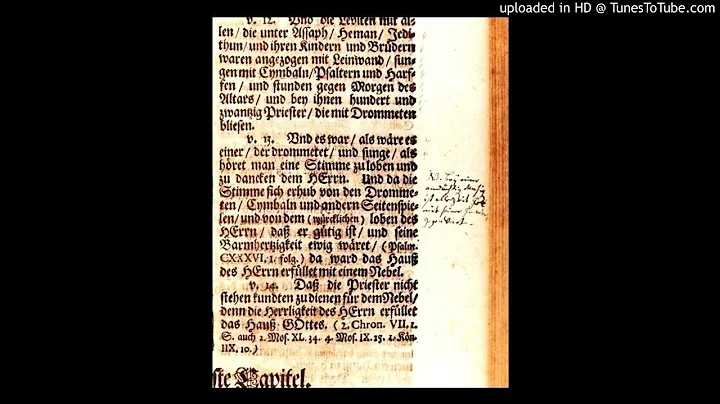 uploaded in HD @ TunesToTube.com
v. 12. Vnd die Leviten mit al-
len / die unter Assaph / Heman / Jedi-
thun / und ihren Kindern und Brüdern
waren angezogen mit Leinwand / sun-
gen mit Cymbaln / Psaltern und Harf-
fen / und stunden gegen Morgen des
Altars / und bey ihnen hundert und
zwantzig Priester / die mit Drommeten
bliesen.
v. 13. Vnd es war / als wäre es
einer / der drommetet / und sunge / als
höret man eine Stimme zu loben und
zu dancken dem HErrn. Und da die
Stimme sich erhub von den Dromme-
ten / Cymbaln und andern Seitenspie-
len / und von dem (würcklichen) loben des
HErrn / daß er gütig ist / und seine
Barmhertzigkeit ewig wäret / (Psalm.
CXXXVI, 1. folg.) da ward das Hauß
des HErrn erfüllet mit einem Nebel.
v. 14. Daß die Priester nicht
stehen kundten zu dienen für dem Nebel /
denn die Herrligkeit des HErrn erfüllet
das Hauß GOttes. (2. Chron. VII. 1.
S. auch 2. Mos. XL. 34. 4. Mos. IX. 15. 1. Kön.
IIX. 10.)
ste Capitel.
NB.